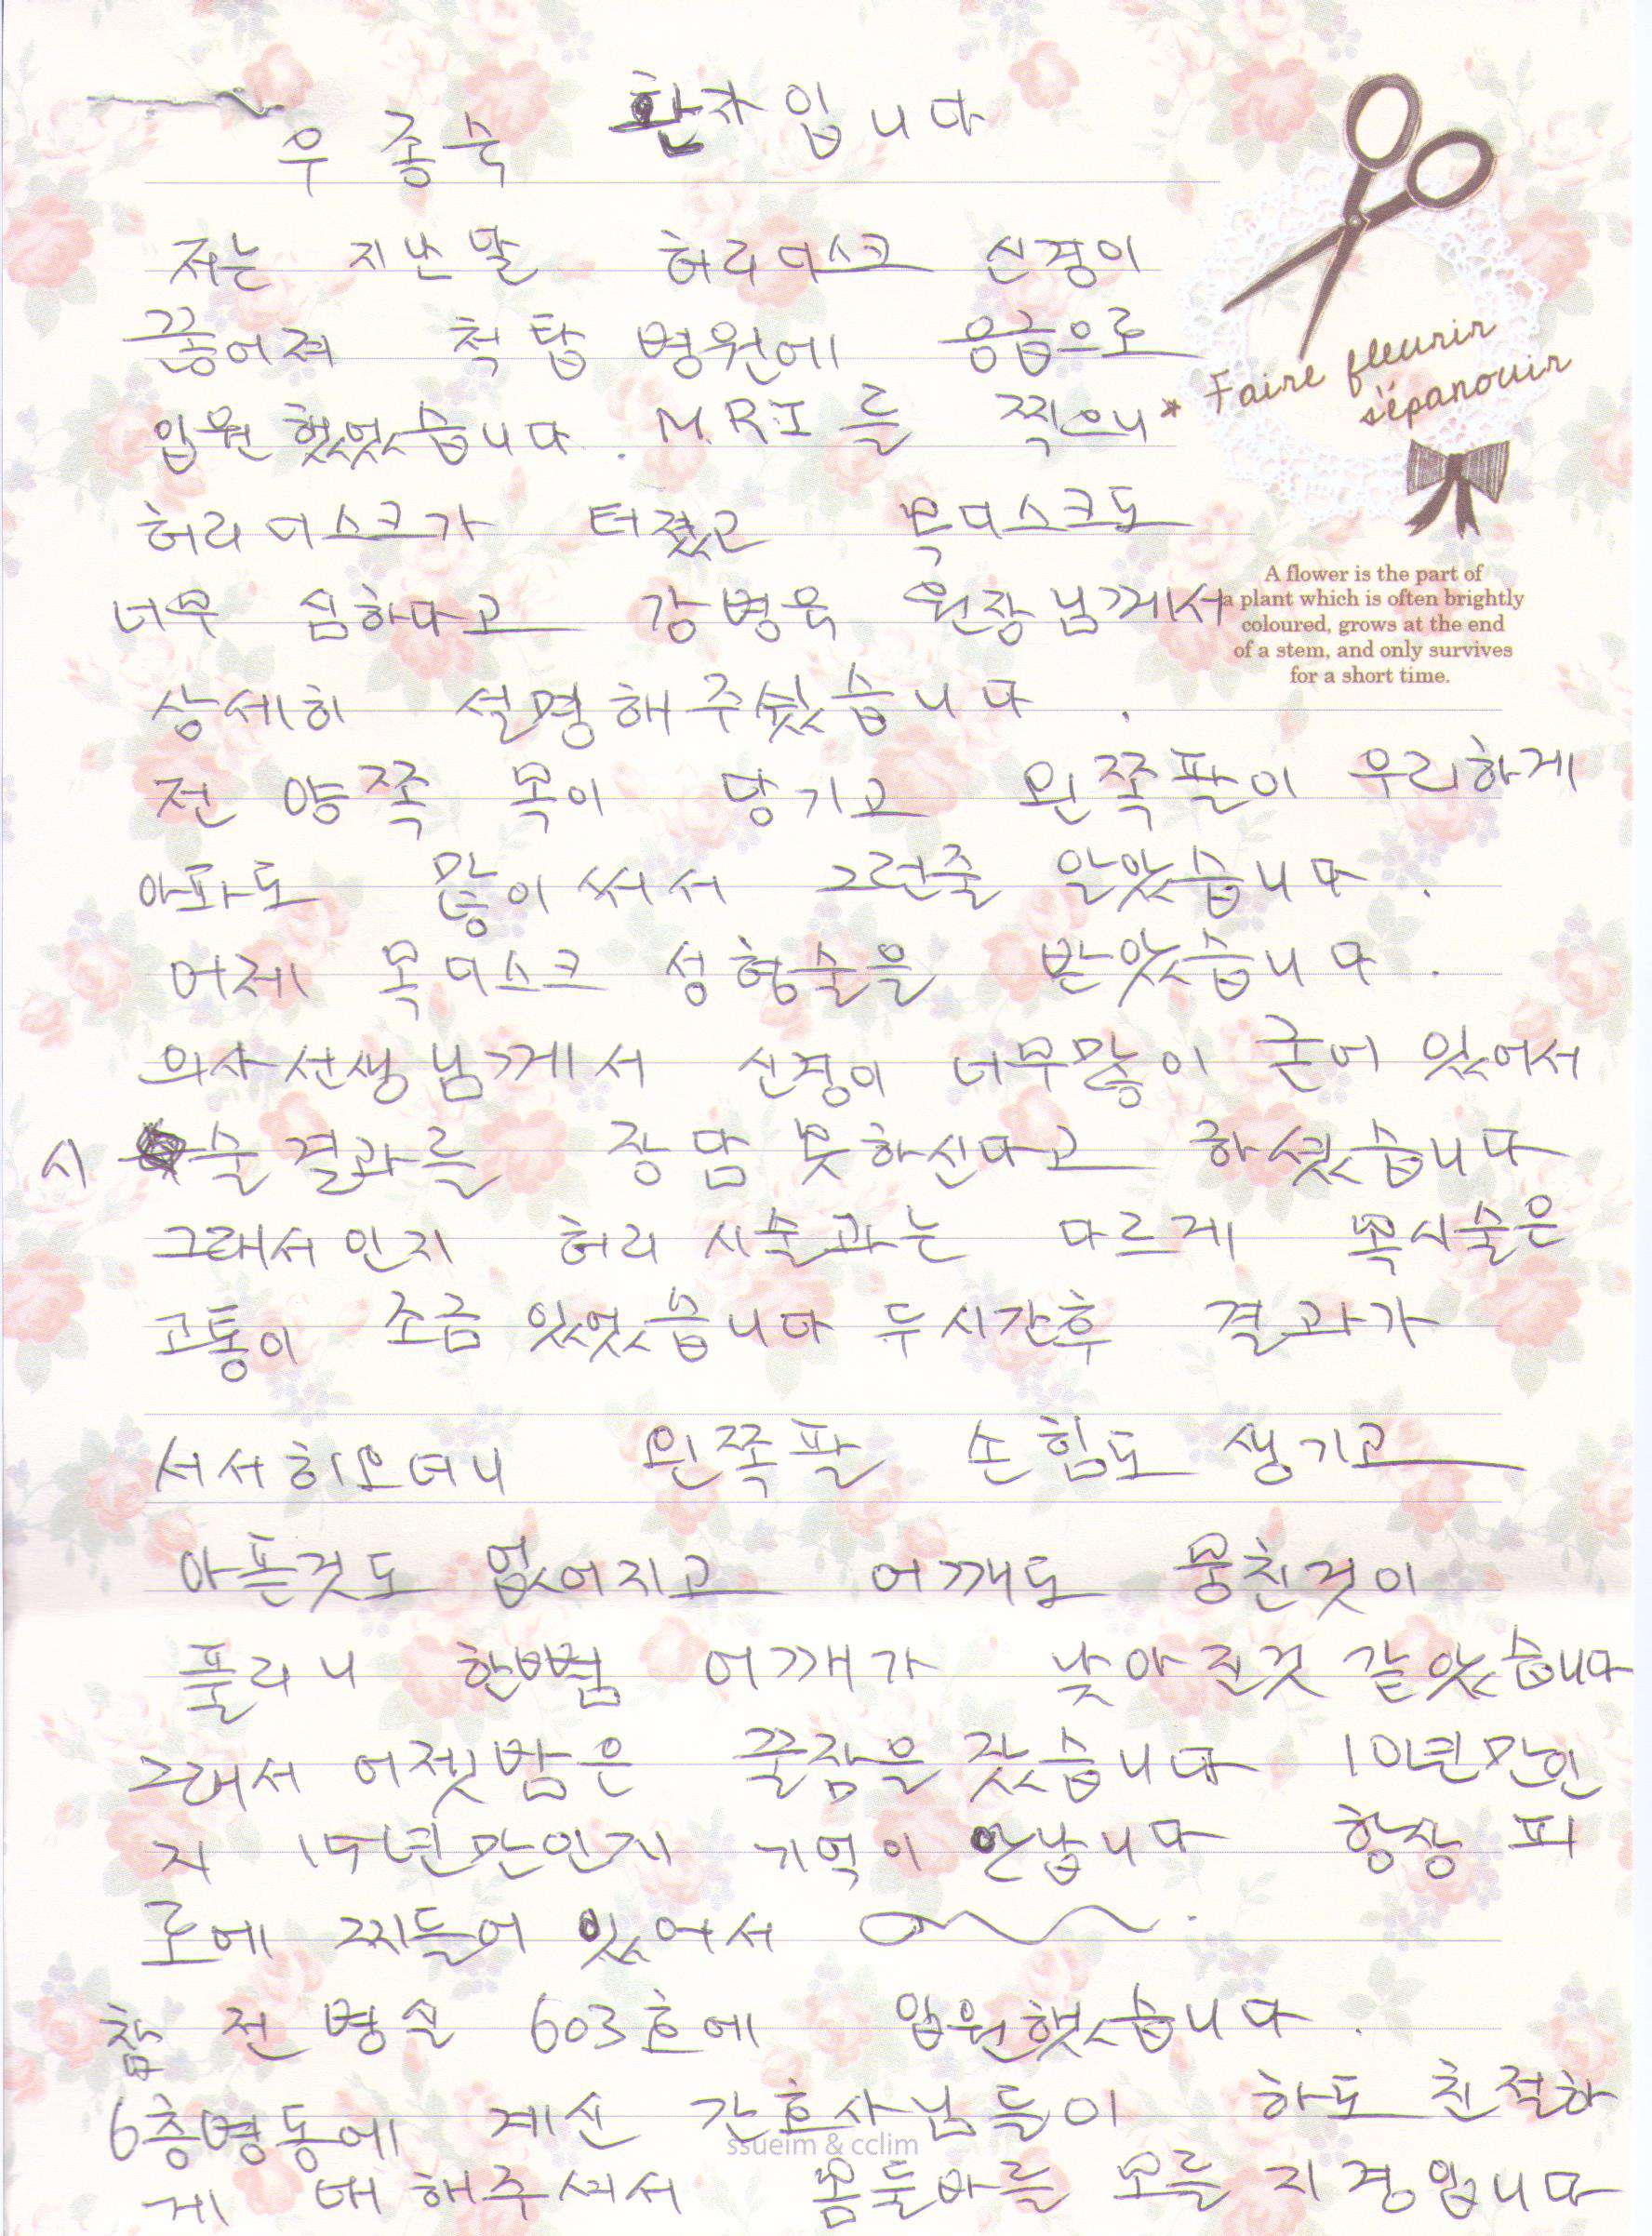 우종숙 환자입니다
저는 지난 말 허리디스크 신경이
끊어져 척탑병원에 응급으로
입원했었습니다. M.R.I를 찍으니
* Faire fleurir
s'épanouir
허리디스크가 터졌고 목디스크도
너무 심하다고 강병욱 원장님께서
A flower is the part of
a plant which is often brightly
coloured, grows at the end
of a stem, and only survives
for a short time.
상세히 설명해주셨습니다.
전 양쪽 목이 당기고 왼쪽팔이 우리하게
아파도 많이써서 그런줄 알았습니다.
어제 목디스크 성형술을 받았습니다.
의사선생님께서 신경이 너무많이 굳어 있어서
시술결과를 장담 못하신다고 하셨습니다
그래서인지 허리 시술과는 다르게 목시술은
고통이 조금 있었습니다 두시간후 결과가
서서히오더니 왼쪽팔 손힘도 생기고
아픈것도 없어지고 어깨도 뭉친것이
풀리니 한뼘 어깨가 낮아진것 같았습니다
그래서 어젯밤은 꿀잠을 잤습니다 10년만인
지 15년만인지 기억이 안납니다 항상 피
로에 찌들어 있어서 ~.
참 전 병실 603호에 입원했습니다.
6층병동에 계신 간호사님들이 하도 친절하
게 대해주셔서 몸둘바를 모를 지경입니다
ssueim & cclim